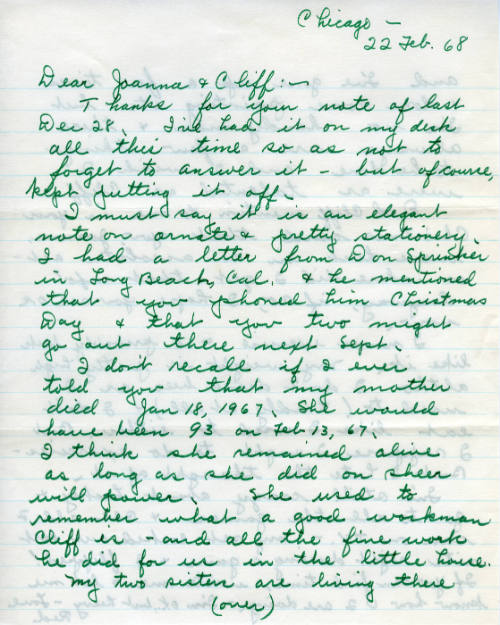 Chicago -
22 Feb. 68
Dear Joanna & Cliff:-
Thanks for your note of last
Dec 28. I've had it on my desk
all this time so as not to
forget to answer it - but of course,
kept putting it off.
I must say it is an elegant
note on ornate & pretty stationery.
I had a letter from Don Sprinker
in Long Beach, Cal. & he mentioned
that you phoned him Christmas
Day & that you two might
go out there next Sept.
I don't recall if I ever
told you that my mother
died Jan 18, 1967. She would
have been 93 on Feb 13, 67.
I think she remained alive
as long as she did on sheer
will power. She used to
remember what a good workman
Cliff is - and all the fine work
he did for us in the little house.
My two sisters are living there
(over)